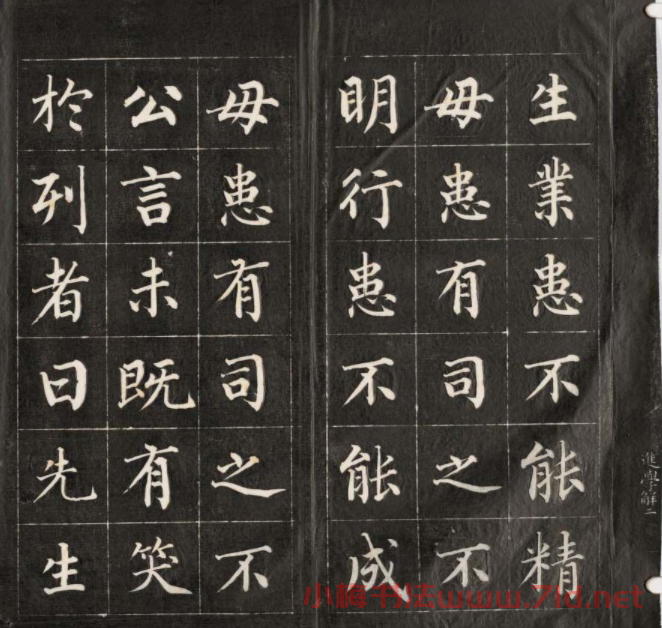 生業患不能精
毋患有司之不
明行患不能成
毋患有司之不
公言未既有笑
於列者曰先生
進學解二
小梅书法www.7ld.net